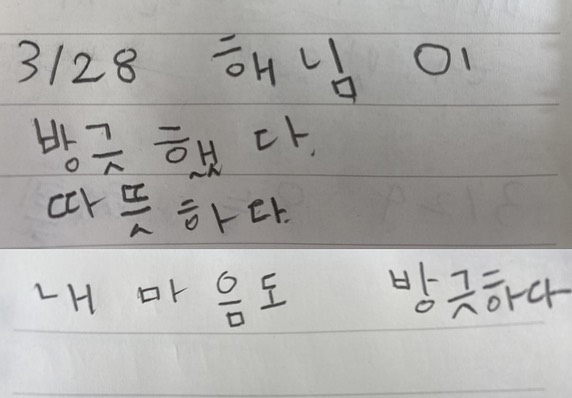 3/28 해님이
방긋했다.
따뜻하다.
내 마음도 방긋하다